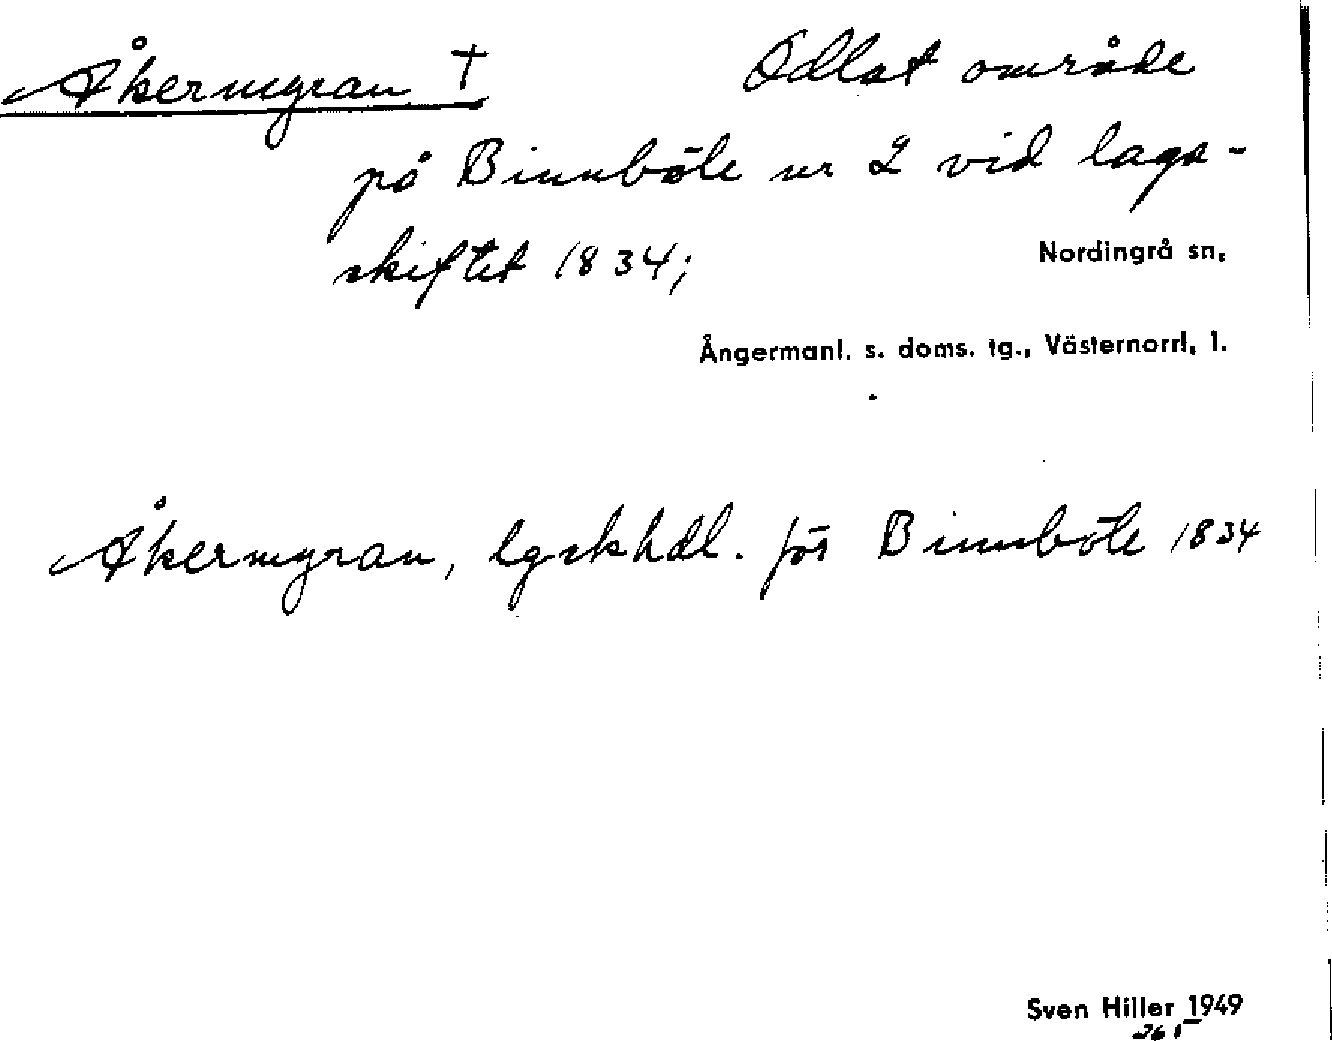 Åkermyran † Odlat område
på Binnböle nr 2 vid laga-
skiftet 1834;
Nordingrå sn,
Ångermanl. s. doms. tg., Västernorrl, l.
Åkermyran, lgskhdl. för Binnböle 1834
Sven Hiller 1949
26 1